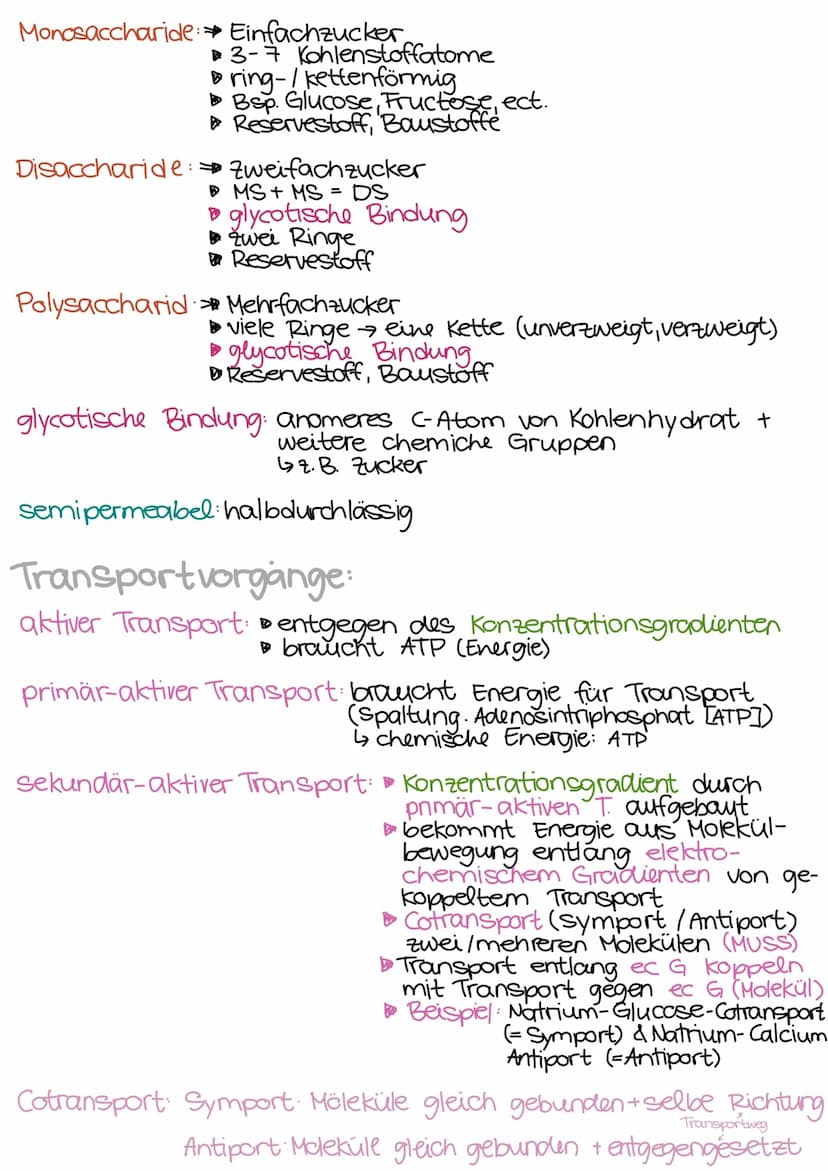 Monosaccharide: → Einfachzucker
▶ 3-7 Kohlenstoffatome
▶ ring-/kettenförmig
▶ Bsp. Glucose, Fructose, ect.
▶ Reservestoff, Baustoffe
Disaccharide: → Zweifachzucker
▶ MS + MS = DS
▶ glycotische Bindung
▶ zwei Ringe
▶ Reservestoff
Polysaccharid: → Mehrfachzucker
▶ viele Ringe → eine Kette (unverzweigt, verzweigt)
▶ glycotische Bindung
▶ Reservestoff, Baustoff
glycotische Bindung: anomeres C-Atom von Kohlenhydrat +
weitere chemiche Gruppen
↳ z.B. Zucker
semipermeabel: halbdurchlässig
Transportvorgänge:
aktiver Transport: ▶ entgegen des Konzentrationsgradienten
▶ braucht ATP (Energie)
primär-aktiver Transport: braucht Energie für Transport
(Spaltung. Adenosintriphosphat [ATP])
↳ chemische Energie: ATP
sekundär-aktiver Transport: ▶ Konzentrationsgradient durch
primär-aktiven T. aufgebaut
▶ bekommt Energie aus Molekül-
bewegung entlang elektro-
chemischem Gradienten von ge-
koppeltem Transport
▶ Cotransport (Symport / Antiport)
zwei/mehreren Molekülen (MUSS)
▶ Transport entlang ec G koppeln
mit Transport gegen ec G (Molekül)
▶ Beispiel: Natrium-Glucose-Cotransport
(= Symport) & Natrium-Calcium
Antiport (=Antiport)
Cotransport: Symport: Möleküle gleich gebunden + selbe Richtung
Transportweg
Antiport: Moleküle gleich gebunden + entgegengesetzt